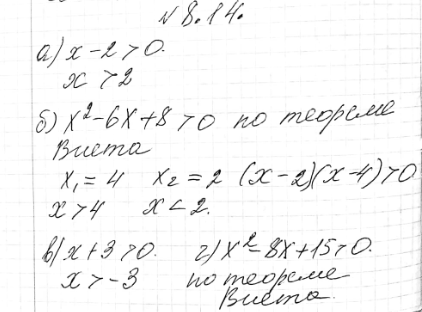 № 8.14.
а) x - 2 > 0.
x > 2
б) x² - 6x + 8 > 0 по теореме
Виета
x₁ = 4 x₂ = 2 (x - 2)(x - 4) > 0
x > 4 x < 2.
в) x + 3 > 0. г) x² - 8x + 15 > 0.
x > -3 по теореме
Виета.